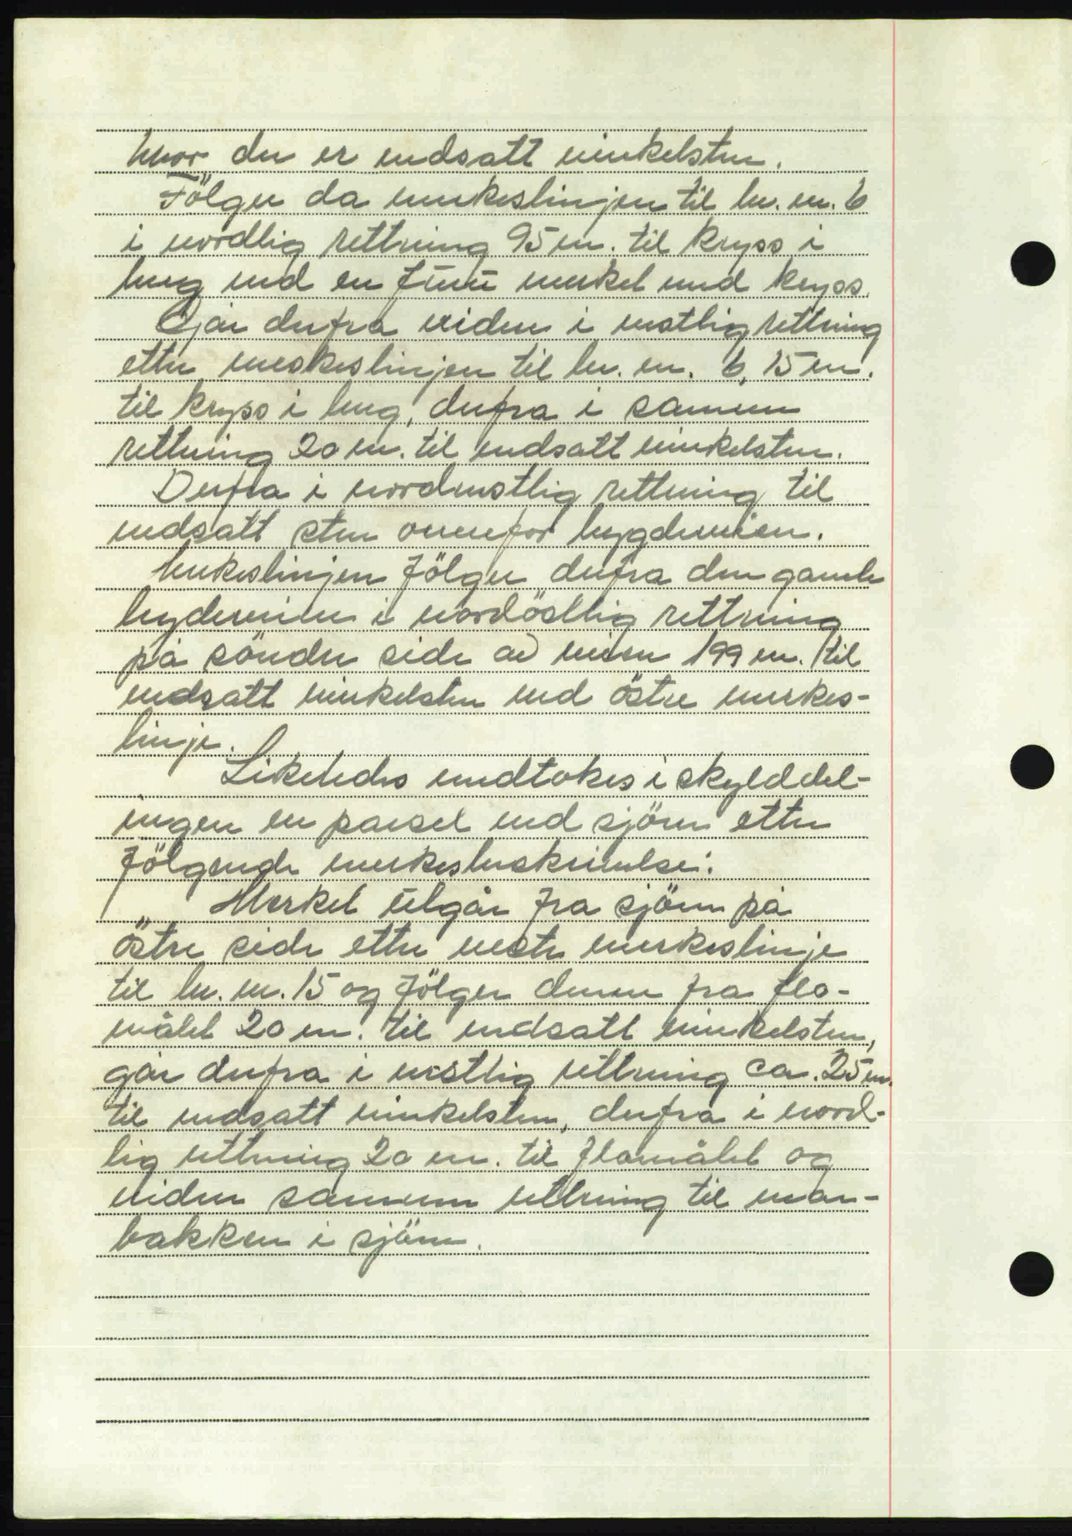 hvor der er nedsatt vinkelsten.
Følger da merkeslinjen til br. nr. 6
i nordlig rettning 95 m. til kryss i
berg ved en furu merket med kryss.
Går derfra viden i vestlig rettning
etter merkeslinjen til br. nr. 6, 15 m.
til kryss i berg, derfra i samme
rettning 20 m. til nedsatt vinkelsten.
Derfra i nordvestlig rettning til
nedsatt sten ovenfor bygdeveien.
Merkeslinjen følger derfra den gamle
bydeveien i nordöstlig rettning
på söndre side av veien 199 m. til
nedsatt vinkelsten ved östre merkes-
linje.
Likeledes undtakes i skylddel-
ingen en parsel ved sjöen etter
följgende merkesbeskrivelse:
Merket utgår fra sjöen på
östre side etter vestre merkeslinje
til br. nr. 15 og fölger denne fra flo-
målet 20 m. til nedsatt vinkelsten,
går derfra i vestlig rettning ca. 25 m.
til nedsatt vinkelsten, derfra i nord-
lig rettning 20 m. til flomålet og
viden samme rettning til mar-
bakken i sjöen.